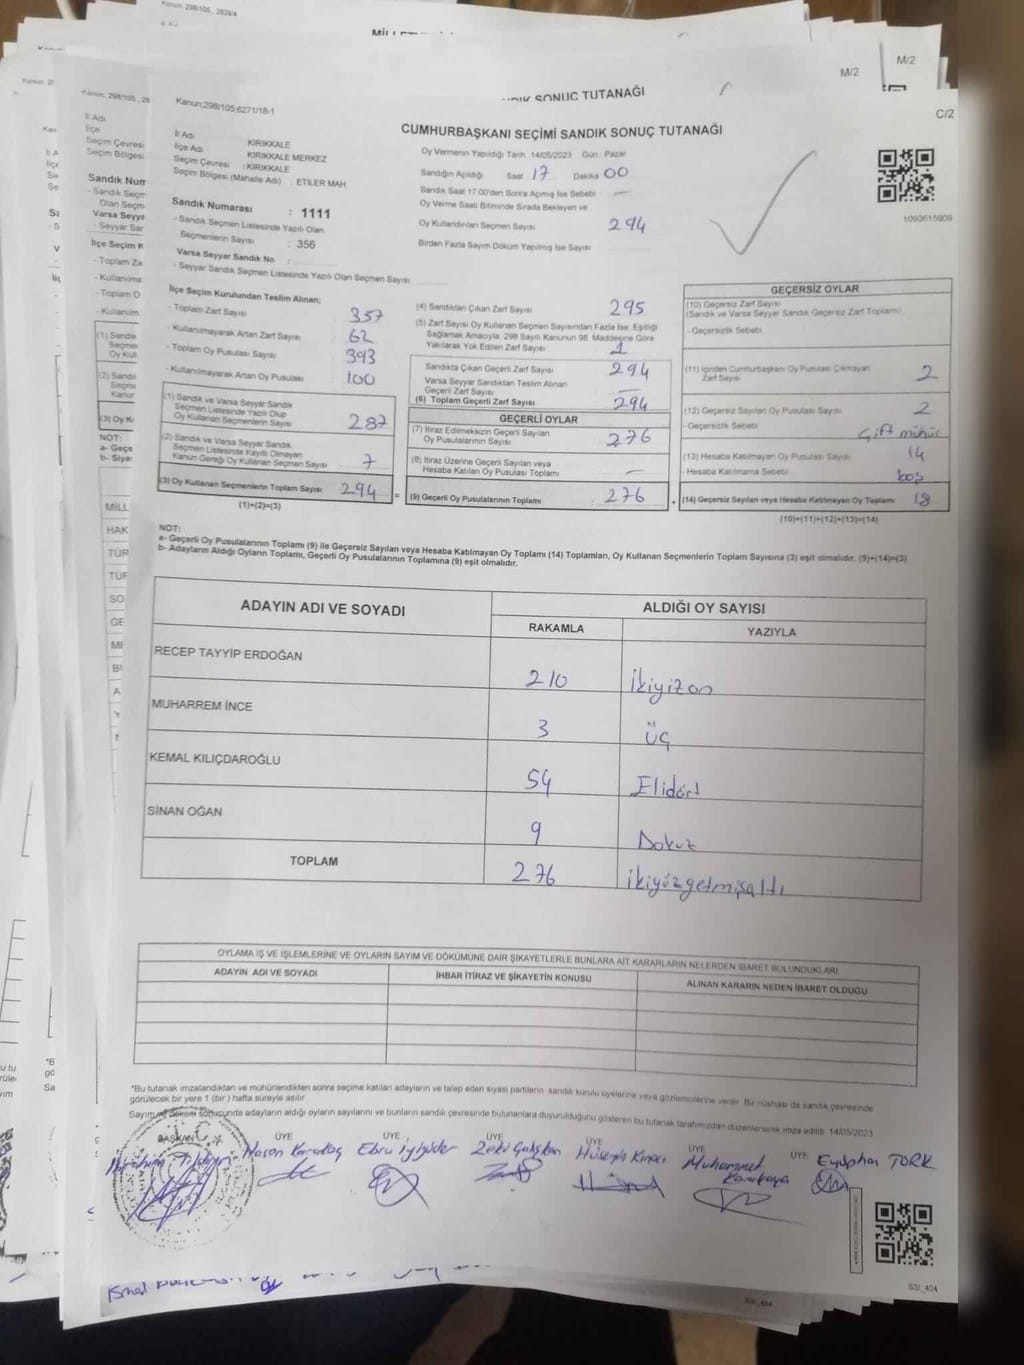 Kanun: 298/105 , 2839/4
M/2
M/2
C/2
Kanun:298/105,6271/18-1
SONUÇ TUTANAĞI
CUMHURBAŞKANI SEÇİMİ SANDIK SONUÇ TUTANAĞI
İl Adı : KIRIKKALE
İlçe Adı : KIRIKKALE MERKEZ
Seçim Çevresi : KIRIKKALE
Seçim Bölgesi (Mahalle Adı) : ETİLER MAH.
Sandık Numarası : 1111
- Sandık Seçmen Listesinde Yazılı Olan
Seçmenlerin Sayısı : 356
Varsa Seyyar Sandık No :
- Seyyar Sandık Seçmen Listesinde Yazılı Olan Seçmen Sayısı
Oy Vermenin Yapıldığı Tarih :14/05/2023 Gün : Pazar
Sandığın Açıldığı Saat 17 Dakika 00
Sandık Saat 17.00'den Sonra Açılmış İse Sebebi —
Oy Verme Saati Bitiminde Sırada Bekleyen ve
Oy Kullandırılan Seçmen Sayısı 294
Birden Fazla Sayım Döküm Yapılmış İse Sayısı
1093615909
İlçe Seçim Kurulundan Teslim Alınan;
- Toplam Zarf Sayısı 357
- Kullanılmayarak Artan Zarf Sayısı 62
- Toplam Oy Pusulası Sayısı 393
- Kullanılmayarak Artan Oy Pusulası 100
(1) Sandık ve Varsa Seyyar Sandık
Seçmen Listesinde Yazılı Olup
Oy Kullanan Seçmenlerin Sayısı 287
(2) Sandık ve Varsa Seyyar Sandık
Seçmen Listesinde Kayıtlı Olmayan
Kanun Gereği Oy Kullanan Seçmen Sayısı 7
(3) Oy Kullanan Seçmenlerin Toplam Sayısı 294
(1)+(2)=(3)
(4) Sandıktan Çıkan Zarf Sayısı 295
(5) Zarf Sayısı Oy Kullanan Seçmen Sayısından Fazla İse, Eşitliği
Sağlamak Amacıyla, 298 Sayılı Kanunun 98. Maddesine Göre
Yakılarak Yok Edilen Zarf Sayısı 1
Sandıkta Çıkan Geçerli Zarf Sayısı 294
Varsa Seyyar Sandıktan Teslim Alınan
Geçerli Zarf Sayısı —
(6) Toplam Geçerli Zarf Sayısı 294
GEÇERLİ OYLAR
(7) İtiraz Edilmeksizin Geçerli Sayılan
Oy Pusulalarının Sayısı 276
(8) İtiraz Üzerine Geçerli Sayılan veya
Hesaba Katılan Oy Pusulası Toplamı —
= (9) Geçerli Oy Pusulalarının Toplamı 276
GEÇERSİZ OYLAR
(10) Geçersiz Zarf Sayısı
(Sandık ve Varsa Seyyar Sandık Geçersiz Zarf Toplamı)
- Geçersizlik Sebebi
(11) İçinden Cumhurbaşkanı Oy Pusulası Çıkmayan
Zarf Sayısı 2
(12) Geçersiz Sayılan Oy Pusulası Sayısı 2
- Geçersizlik Sebebi Çift mühür
(13) Hesaba Katılmayan Oy Pusulası Sayısı 14
- Hesaba Katılmama Sebebi boş
+ (14) Geçersiz Sayılan veya Hesaba Katılmayan Oy Toplamı 18
(10)+(11)+(12)+(13)=(14)
NOT:
a- Geçerli Oy Pusulalarının Toplamı (9) ile Geçersiz Sayılan veya Hesaba Katılmayan Oy Toplamı (14) Toplamları, Oy Kullanan Seçmenlerin Toplam Sayısına (3) eşit olmalıdır. (9)+(14)=(3)
b- Adayların Aldığı Oyların Toplamı, Geçerli Oy Pusulalarının Toplamına (9) eşit olmalıdır.
ADAYIN ADI VE SOYADI
ALDIĞI OY SAYISI
RAKAMLA YAZIYLA
RECEP TAYYİP ERDOĞAN 210 ikiyizon
MUHARREM İNCE 3 üç
KEMAL KILIÇDAROĞLU 54 Elidört
SİNAN OĞAN 9 Dokuz
TOPLAM 276 ikiyüzyetmişaltı
OYLAMA İŞ VE İŞLEMLERİNE VE OYLARIN SAYIM VE DÖKÜMÜNE DAİR ŞİKAYETLERLE BUNLARA AİT KARARLARIN NELERDEN İBARET BULUNDUKLARI
ADAYIN ADI VE SOYADI İHBAR İTİRAZ VE ŞİKAYETİN KONUSU ALINAN KARARIN NEDEN İBARET OLDUĞU
*Bu tutanak imzalandıktan ve mühürlendikten sonra seçime katılan adayların ve talep eden siyasi partilerin sandık kurulu üyelerine veya gözlemcilerine verilir. Bir nüshası da sandık çevresinde
görülecek bir yere 1 (bir ) hafta süreyle asılır
Sayım ve döküm sonucunda adayların aldığı oyların sayılarını ve bunların sandık çevresinde bulunanlara duyurulduğunu gösteren bu tutanak tarafımızdan düzenlenerek imza edildi. 14/05/2023
BAŞKAN ÜYE ÜYE ÜYE ÜYE ÜYE ÜYE
Hasan Karadaş Ebru Zeki Çalışkan Hüseyin Muhammet Karakaya Eyüphan TÜRK
SSI_404
SSI_404